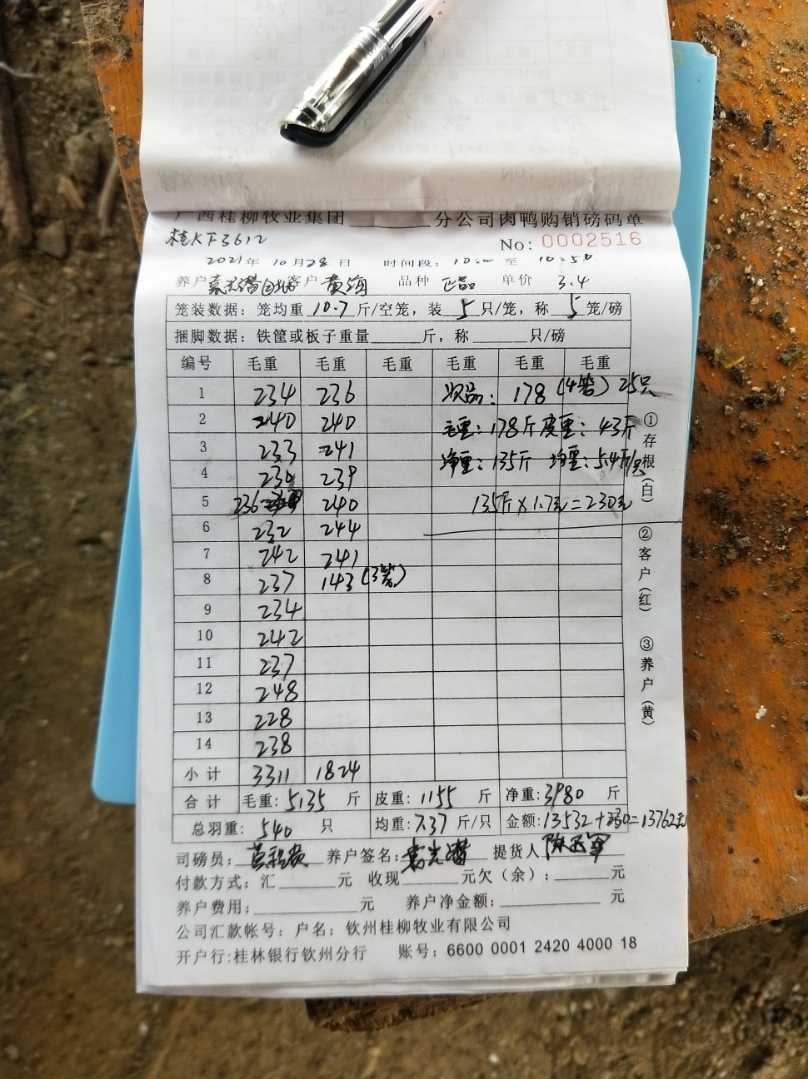 广西桂柳牧业集团______分公司肉鸭购销磅码单
桂KF3612 No: 0002516
2021年10月28日 时间段: 10:00 至 10:50
养户 客户 黄海 品种 正品 单价 3.4
笼装数据: 笼均重 10.7 斤/空笼, 装 5 只/笼, 称 5 笼/磅
捆脚数据: 铁筐或板子重量______斤, 称______只/磅
编号 毛重 毛重 毛重 毛重 毛重 毛重
1 234 236 次品: 178 (4笼) 25只
2 240 240 毛重: 178斤 皮重: 43斤
3 233 241 净重: 135斤 均重: 5.4斤/只
4 230 239
5 236 240 135斤×1.7元=230元
6 232 244
7 242 241
8 237 143 (3笼)
9 234
10 242
11 237
12 248
13 228
14 238
小计 3311 1824
合计 毛重: 5135 斤 皮重: 1155 斤 净重: 3980 斤
总羽重: 540 只 均重: 7.37 斤/只 金额: 13532+230=13762元
司磅员: 养户签名: 提货人
付款方式: 汇______元 收现______元欠(余): ______元
养户费用: ______元 养户净金额: ______元
公司汇款帐号: 户名: 钦州桂柳牧业有限公司
开户行:桂林银行钦州分行 账号: 6600 0001 2420 4000 18
①存根(白) ②客户(红) ③养户(黄)